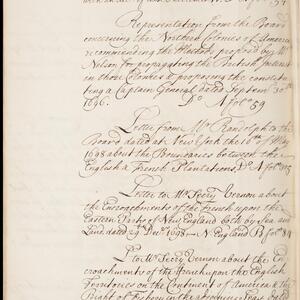 Representation from the Board
concerning the Northern Colonies of America
recommending the Methods proposed by Mr
Nelson for propagating the British Interest
in those Colonies & proposing the constitu
ting a Captain General dated Septem 30th
1696. Do A fol. 59
Letter from Mr Randolph to the
Board dated at New York the 16th of May
1698 about the Boundaries between the
English & French Plantations, Do A fol
Letter to Mr Secry Vernon about
the Encroachments of the French upon the
Eastern Parts of New England both by Sea and
Land, dated 29 Decr 1698 N. England B fol
Do to Mr Secry Vernon about the En
croachments of the French upon the English
Frontieres on the Continent of America & the
Right of Fishery in the